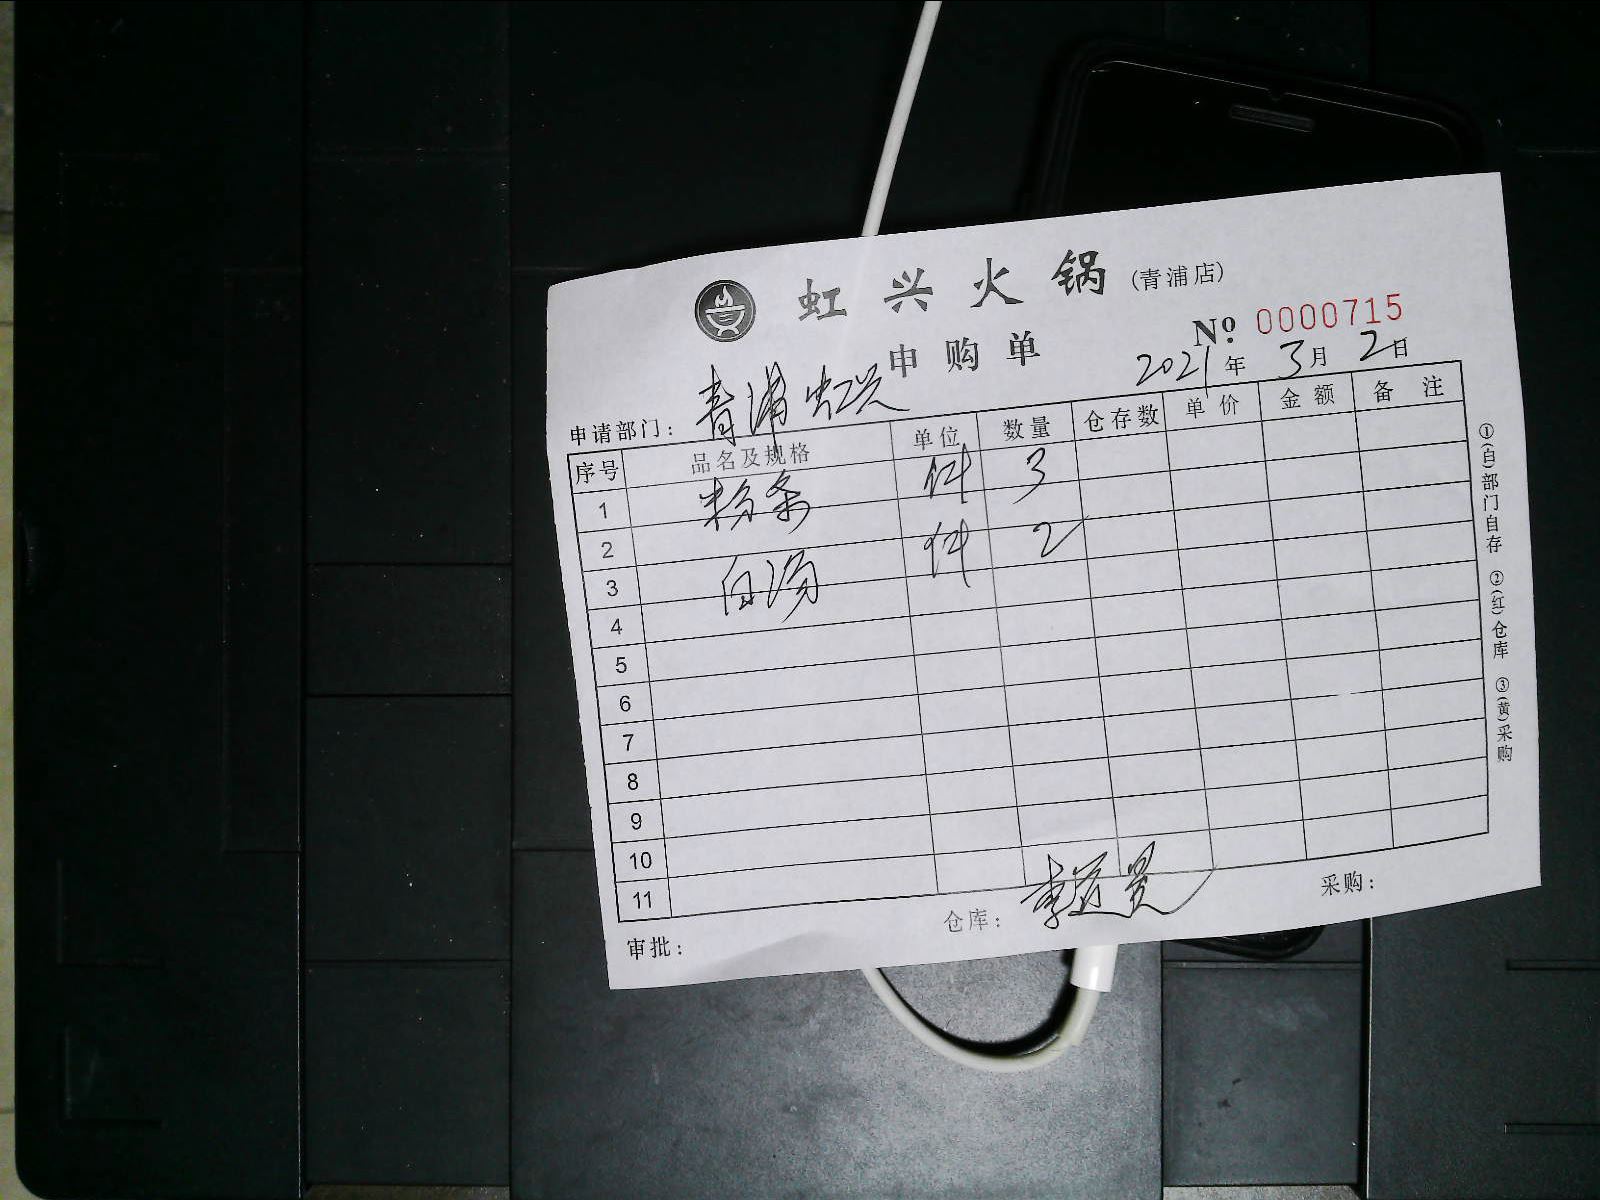 虹兴火锅(青浦店)
申购单
№ 0000715
2021年3月2日
申请部门：青浦虹兴
序号 品名及规格 单位 数量 仓存数 单价 金额 备注
1 粉条 件 3
2
3 白汤 件 2
4
5
6
7
8
9
10
11
审批： 仓库： 采购：
①(白)部门自存 ②(红)仓库 ③(黄)采购